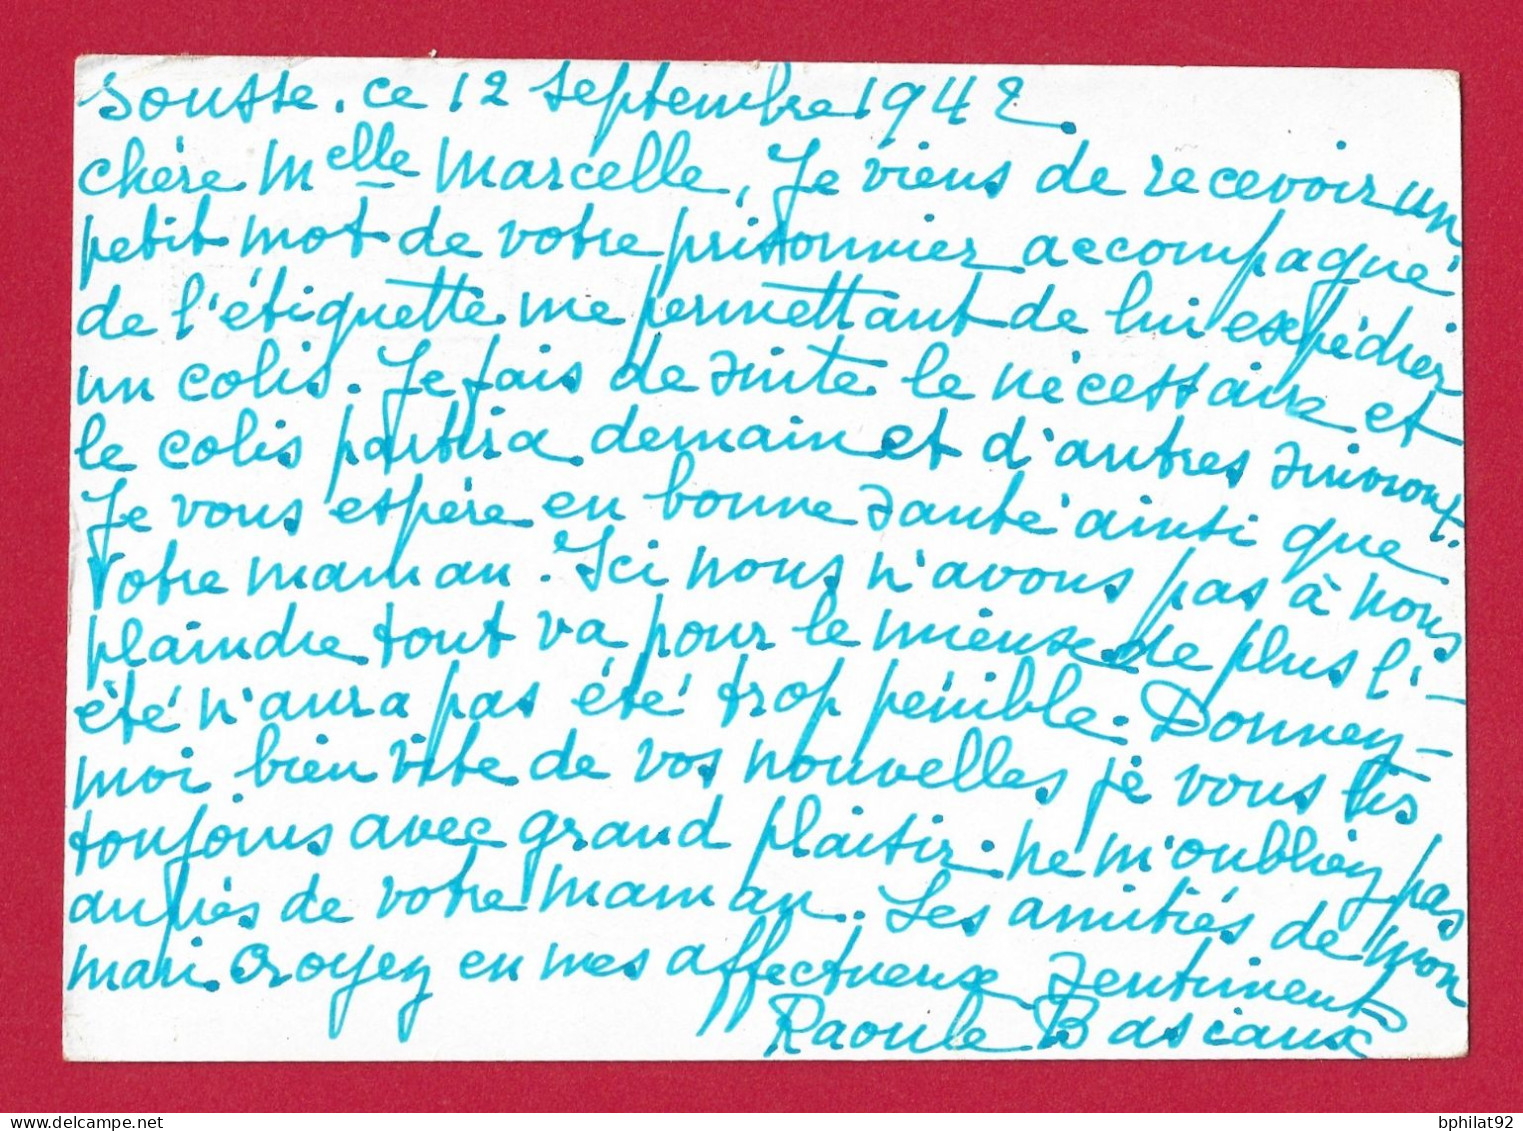 Sousse. ce 12 septembre 1942.
chère Melle Marcelle, Je viens de recevoir un
petit mot de votre prisonnier accompagné
de l'étiquette me permettant de lui expédier
un colis. Je fais de suite le nécessaire et
le colis partira demain et d'autres suivront.
Je vous espère en bonne santé ainsi que
votre maman. Ici nous n'avons pas à nous
plaindre tout va pour le mieux de plus l'-
été n'aura pas été trop pénible. Donney-
moi bien vite de vos nouvelles je vous lis
toujours avec grand plaisir. ne m'oubliey pas
auprès de votre maman. Les amitiés de mon
mari. Croyey en mes affectueux sentiments
Raoule Basciaux
bphilat92